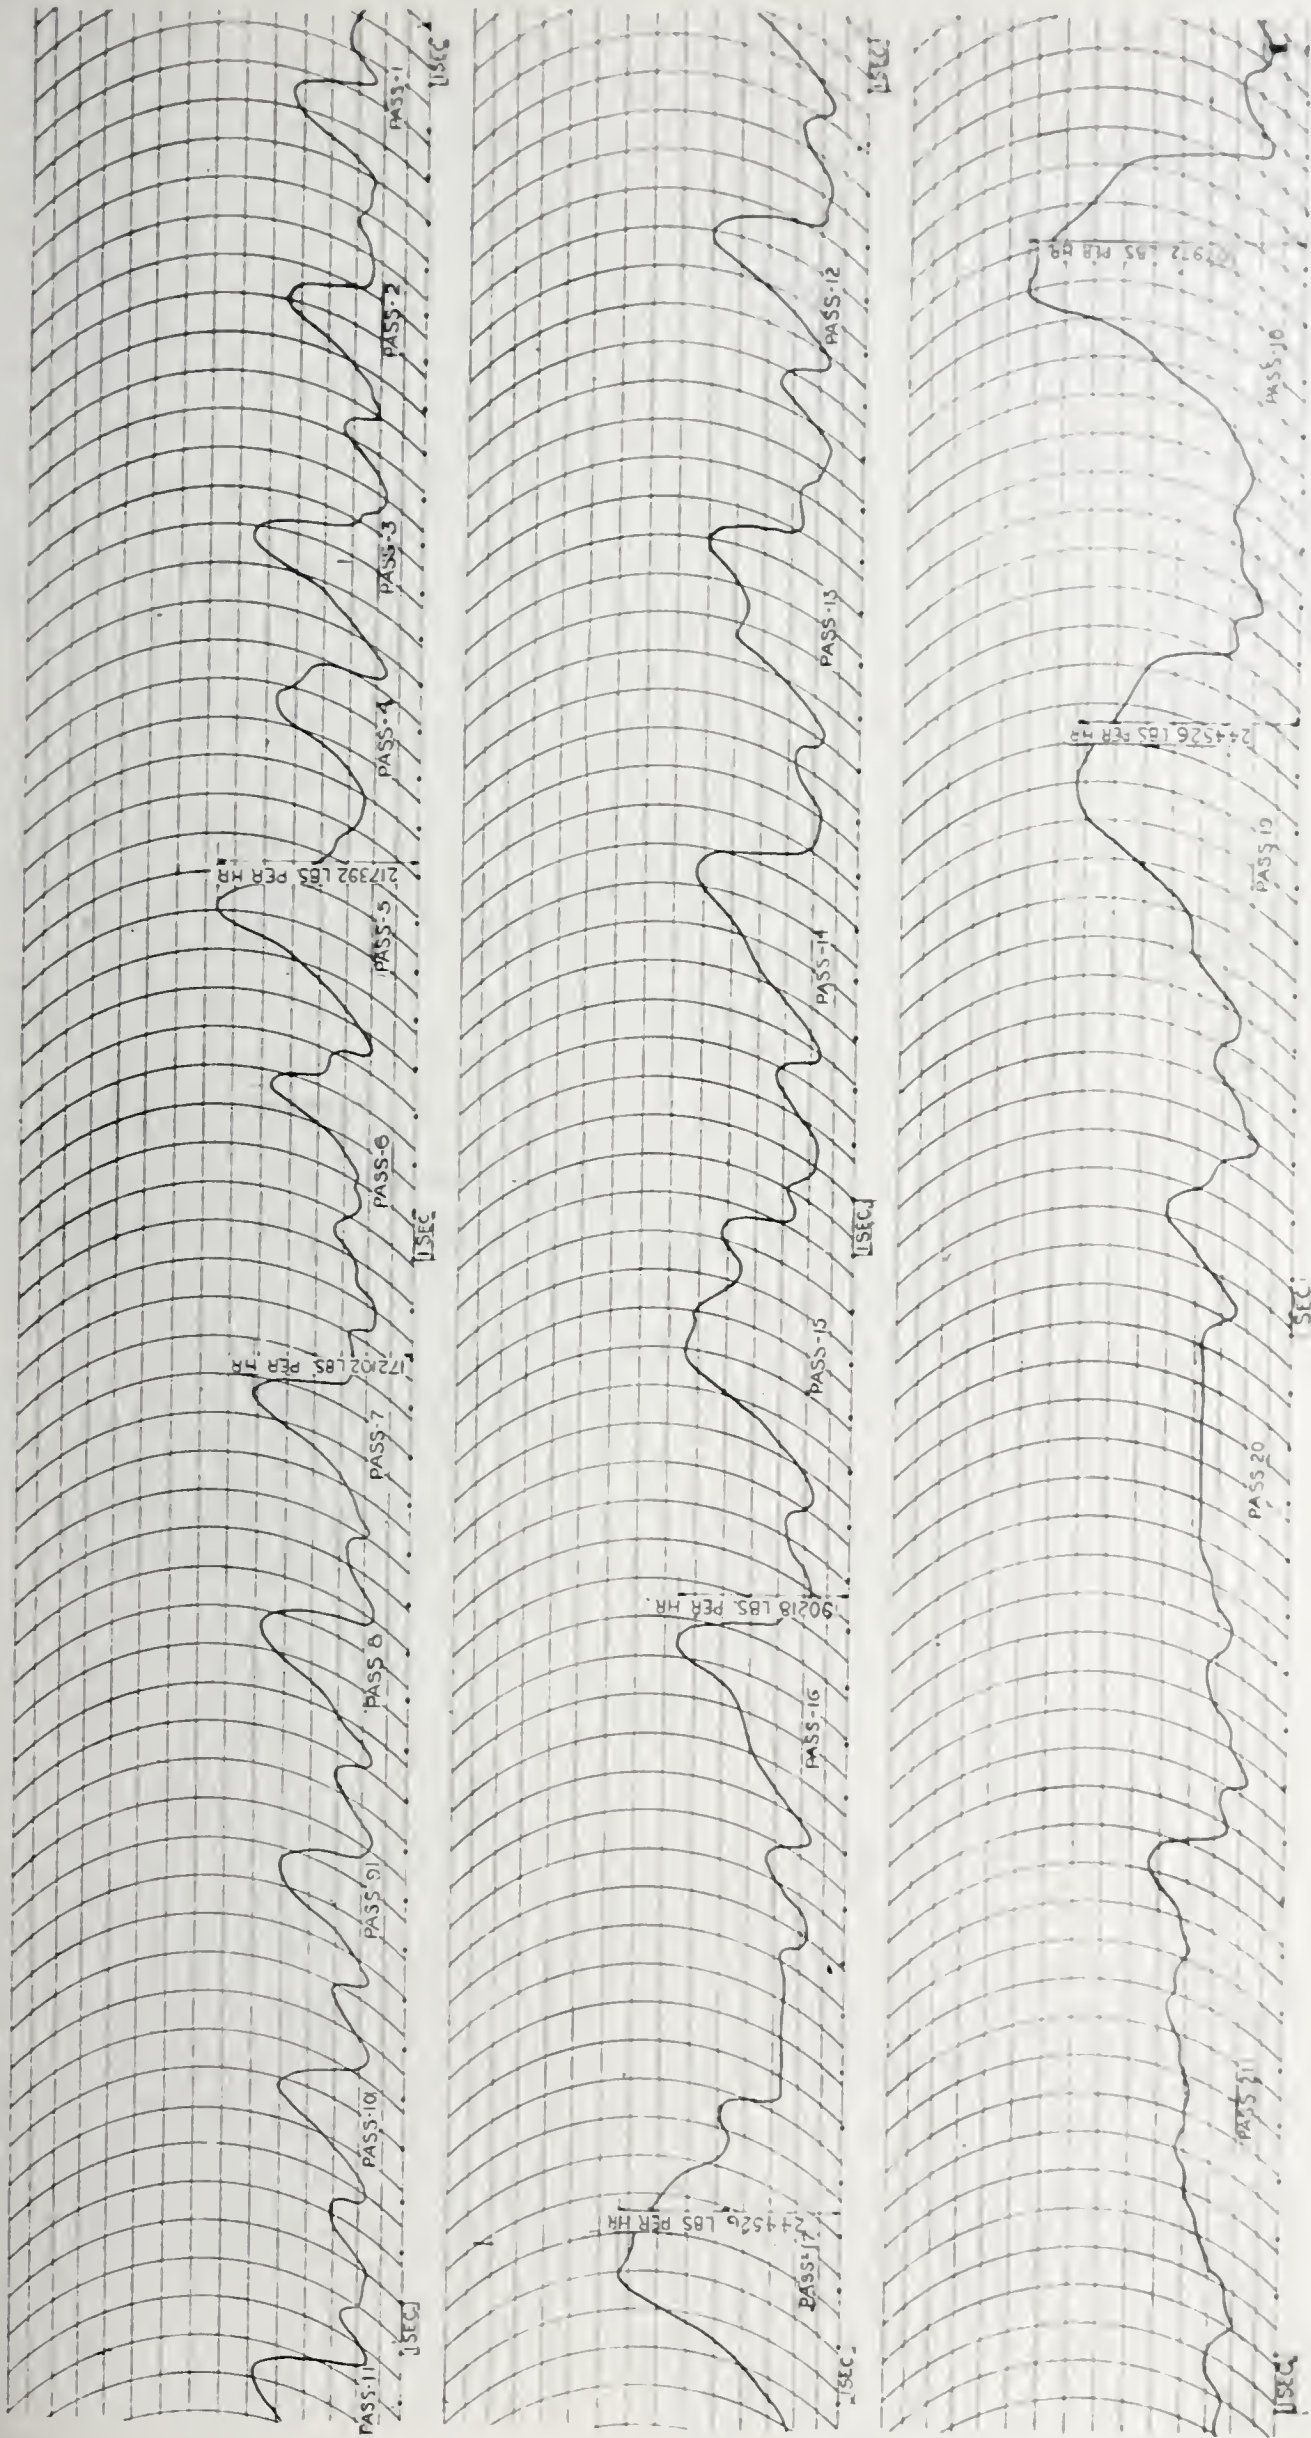 1SEC
PASS-1
PASS-2
PASS-3
PASS-4
217392 LBS PER HR
PASS-5
PASS-6
1SEC
172102 LBS. PER HR
PASS-7
PASS 8
PASS 9
PASS-10
1SEC
PASS-11
1SEC
PASS-12
PASS-13
PASS-14
1SEC
PASS-15
190218 LBS PER HR.
PASS-16
244526 LBS PER HR
PASS-17
1SEC
LBS PER HR
PASS-18
244526 LBS PER HR
PASS 19
SEC
PASS 20
PASS 21
1SEC